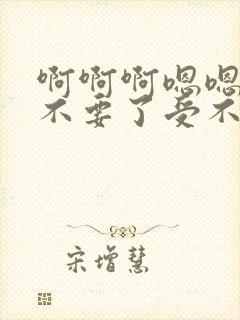 啊啊啊嗯嗯
不要了受不
宋增慧